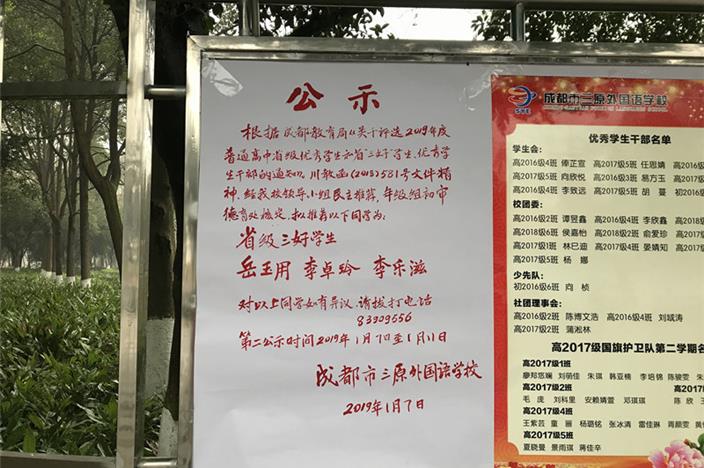 公示
根据成都教育局《关于评选2019年度
普通高中省级优秀学生和省"三好"学生、优秀学
生干部的通知》川教函(2018)581号文件精
神，经我校领导小组民主推荐，年级组初审
德育处核定，拟推荐以下同学为：
省级三好学生
岳玉用 李卓吟 李乐滋
对以上同学如有异议，请拨打电话
83909656
第二公示时间2019年1月7日至1月11日
成都市三原外国语学校
2019年1月7日
SYE
成都市三原外国语学校
优秀学生干部名单
学生会：
高2016级4班 俸正宣 高2017级5班 任思婧 高2016
高2016级2班 向欣悦 高2017级5班 易方玉 高2016级
高2016级4班 李致远 高2017级5班 胡蔓 初2016级
校团委：
高2016级2班 谭昱鑫 高2016级4班 李欣鑫 高2016级
高2018级6班 侯嘉怡 高2018级6班 俞爱珍 高2017级
高2017级1班 林巳迪 高2017级4班 晏婧知 高2017级
高2017级1班 杨娜
少先队：
初2016级6班 向桢
社团理事会：
高2016级2班 陈博文浩 高2016级4班 刘斌涛
高2017级2班 蒲淞林
高2017级国旗护卫队第二学期名
高2017级1班
廖郑悠斓 刘萌佳 朱琪 韩亚楠 李培锦 陈骏雯 朱
高2017级2班 高2017
毛庞 刘科里 安赖婧萱 邓琪琪 陈欣 王
高2017级4班
王紫芸 童丽 杨璐铭 张冰清 雷佳琳 胥颜雯 黄
高2017级5班
夏晓曼 景雨琪 蒋佳辛